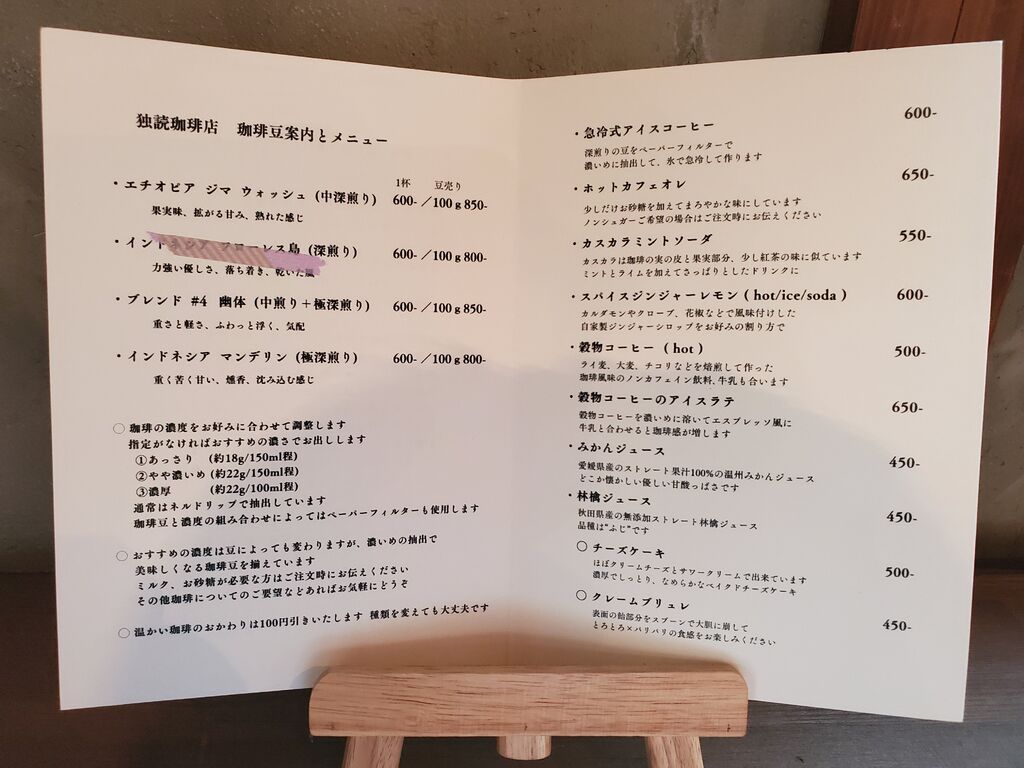 独読珈琲店　珈琲豆案内とメニュー
1杯　豆売り
・エチオピア ジマ ウォッシュ (中深煎り) 600-／100ｇ850-
果実味、拡がる甘み、熟れた感じ
・インドネシア フローレス島 (深煎り) 600-／100ｇ800-
力強い優しさ、落ち着き、乾いた風
・ブレンド #4 幽体 (中煎り＋極深煎り) 600-／100ｇ850-
重さと軽さ、ふわっと浮く、気配
・インドネシア マンデリン (極深煎り) 600-／100ｇ800-
重く苦く甘い、燻香、沈み込む感じ
○ 珈琲の濃度をお好みに合わせて調整します
指定がなければおすすめの濃さでお出しします
①あっさり (約18g/150ml程)
②やや濃いめ (約22g/150ml程)
③濃厚 (約22g/100ml程)
通常はネルドリップで抽出しています
珈琲豆と濃度の組み合わせによってはペーパーフィルターも使用します
○ おすすめの濃度は豆によっても変わりますが、濃いめの抽出で
美味しくなる珈琲豆を揃えています
ミルク、お砂糖が必要な方はご注文時にお伝えください
その他珈琲についてのご要望などあればお気軽にどうぞ
○ 温かい珈琲のおかわりは100円引きいたします 種類を変えても大丈夫です
・急冷式アイスコーヒー 600-
深煎りの豆をペーパーフィルターで
濃いめに抽出して、氷で急冷して作ります
・ホットカフェオレ 650-
少しだけお砂糖を加えてまろやかな味にしています
ノンシュガーご希望の場合はご注文時にお伝えください
・カスカラミントソーダ 550-
カスカラは珈琲の実の皮と果実部分、少し紅茶の味に似ています
ミントとライムを加えてさっぱりとしたドリンクに
・スパイスジンジャーレモン ( hot/ice/soda ) 600-
カルダモンやクローブ、花椒などで風味付けした
自家製ジンジャーシロップをお好みの割り方で
・穀物コーヒー ( hot ) 500-
ライ麦、大麦、チコリなどを焙煎して作った
珈琲風味のノンカフェイン飲料、牛乳も合います
・穀物コーヒーのアイスラテ 650-
穀物コーヒーを濃いめに溶いてエスプレッソ風に
牛乳と合わせると珈琲感が増します
・みかんジュース 450-
愛媛県産のストレート果汁100%の温州みかんジュース
どこか懐かしい優しい甘酸っぱさです
・林檎ジュース 450-
秋田県産の無添加ストレート林檎ジュース
品種は“ふじ”です
○ チーズケーキ 500-
ほぼクリームチーズとサワークリームで出来ています
濃厚でしっとり、なめらかなベイクドチーズケーキ
○ クレームブリュレ 450-
表面の飴部分をスプーンで大胆に崩して
とろとろ×パリパリの食感をお楽しみください